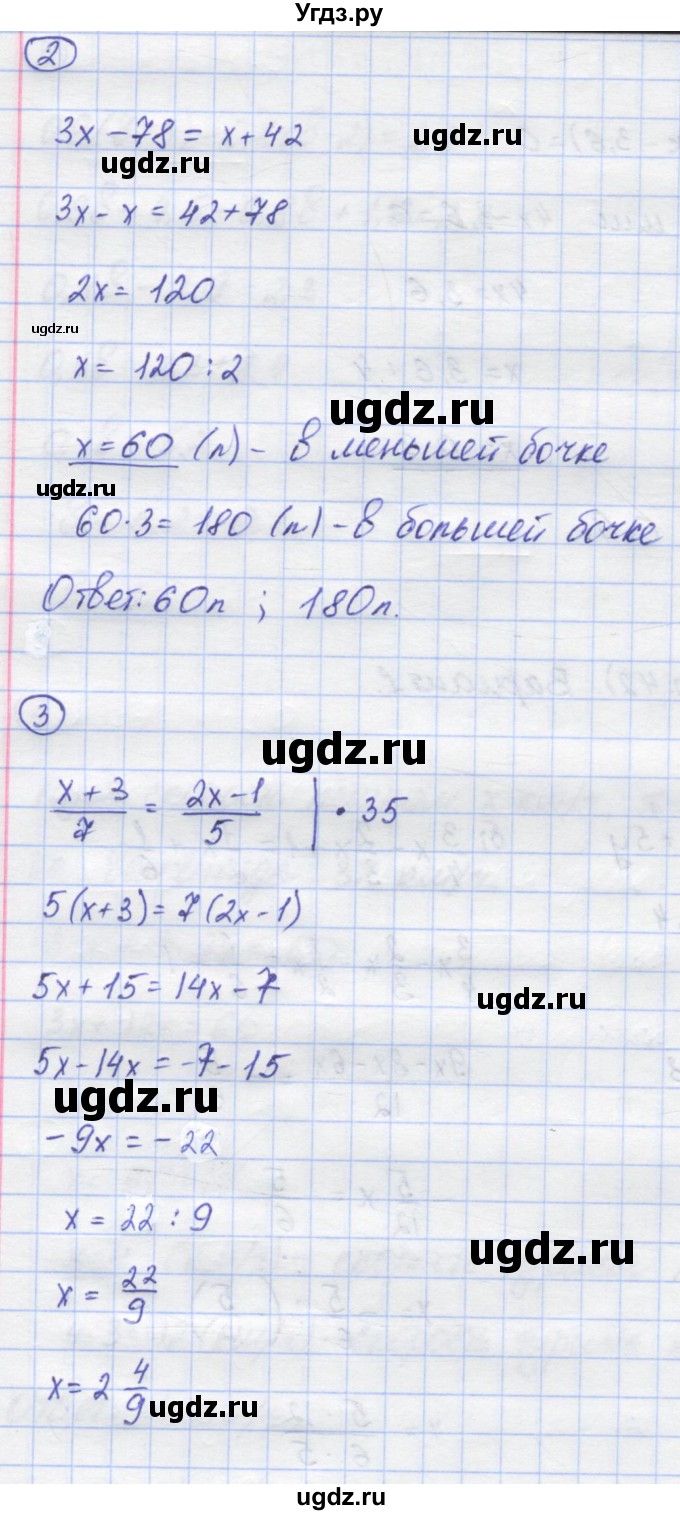 Угдз.ру
2
3x - 78 = x + 42
ugdz.ru ugdz.ru
3x - x = 42 + 78
2x = 120
ugdz.ru
x = 120 : 2
ugdz.ru
x = 60 (л) - в меньшей бочке
ugdz.ru
60 · 3 = 180 (л) - в большей бочке
Ответ: 60л ; 180л.
3
ugdz.ru
(x + 3)/7 = (2x - 1)/5 | · 35
5(x+3) = 7(2x - 1)
5x + 15 = 14x - 7
ugdz.ru
5x - 14x = -7 - 15
ugdz.ru
-9x = -22
x = 22 : 9
ugdz.ru
x = 22/9
x = 2 4/9
ugdz.ru
ugdz.ru